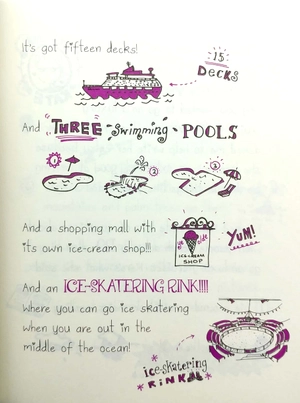 It's got fifteen decks!
15
DECKS
And THREE Swimming POOLS
1
2
3
And a shopping mall with
its own ice-cream shop!!!
ICE-CREAM
SHOP
YUM!
And an ICE-SKATERING RINK!!!!
Where you can go ice skatering
when you are out in the
middle of the ocean!
ice-skatering
RINK